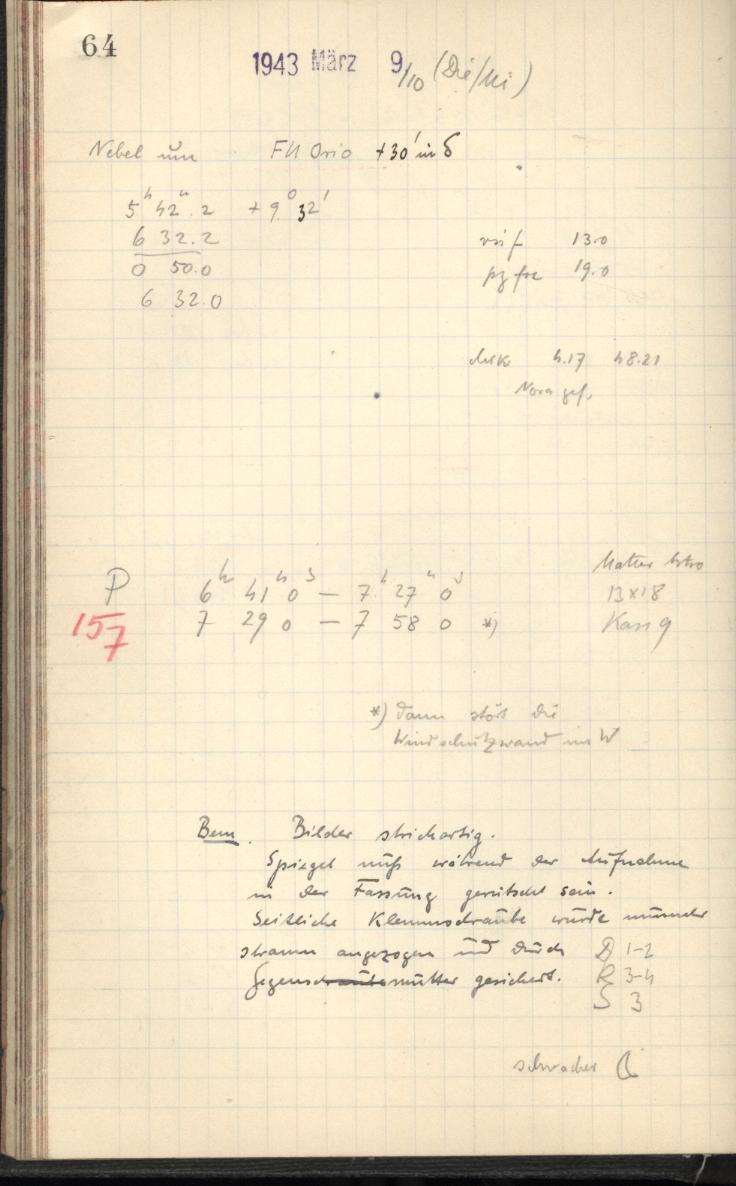 64
1943 März 9/10 (Die/Mi)
Nebel um FU Orio +30' in δ
5h 42m.2 +9° 32'
6 32.2
0 50.0
6 32.0
vis f 13.0
pg foc 19.0
4.17 48.21
Nova gef.
P 6h 41m 0s — 7h 27m 0s
13x18
157 7 29 0 — 7 58 0 *)
Kass 9
*) dann stört die
Windschutzwand im W
Bem. Bilder strichartig.
Spiegel muß während der Aufnahme
in der Fassung gerutscht sein.
Seitliche Klemmschraube wurde nunmehr
stramm angezogen und durch
Gegenschraubemutter gesichert.
D 1-2
R 3-4
S 3
schwacher ☾